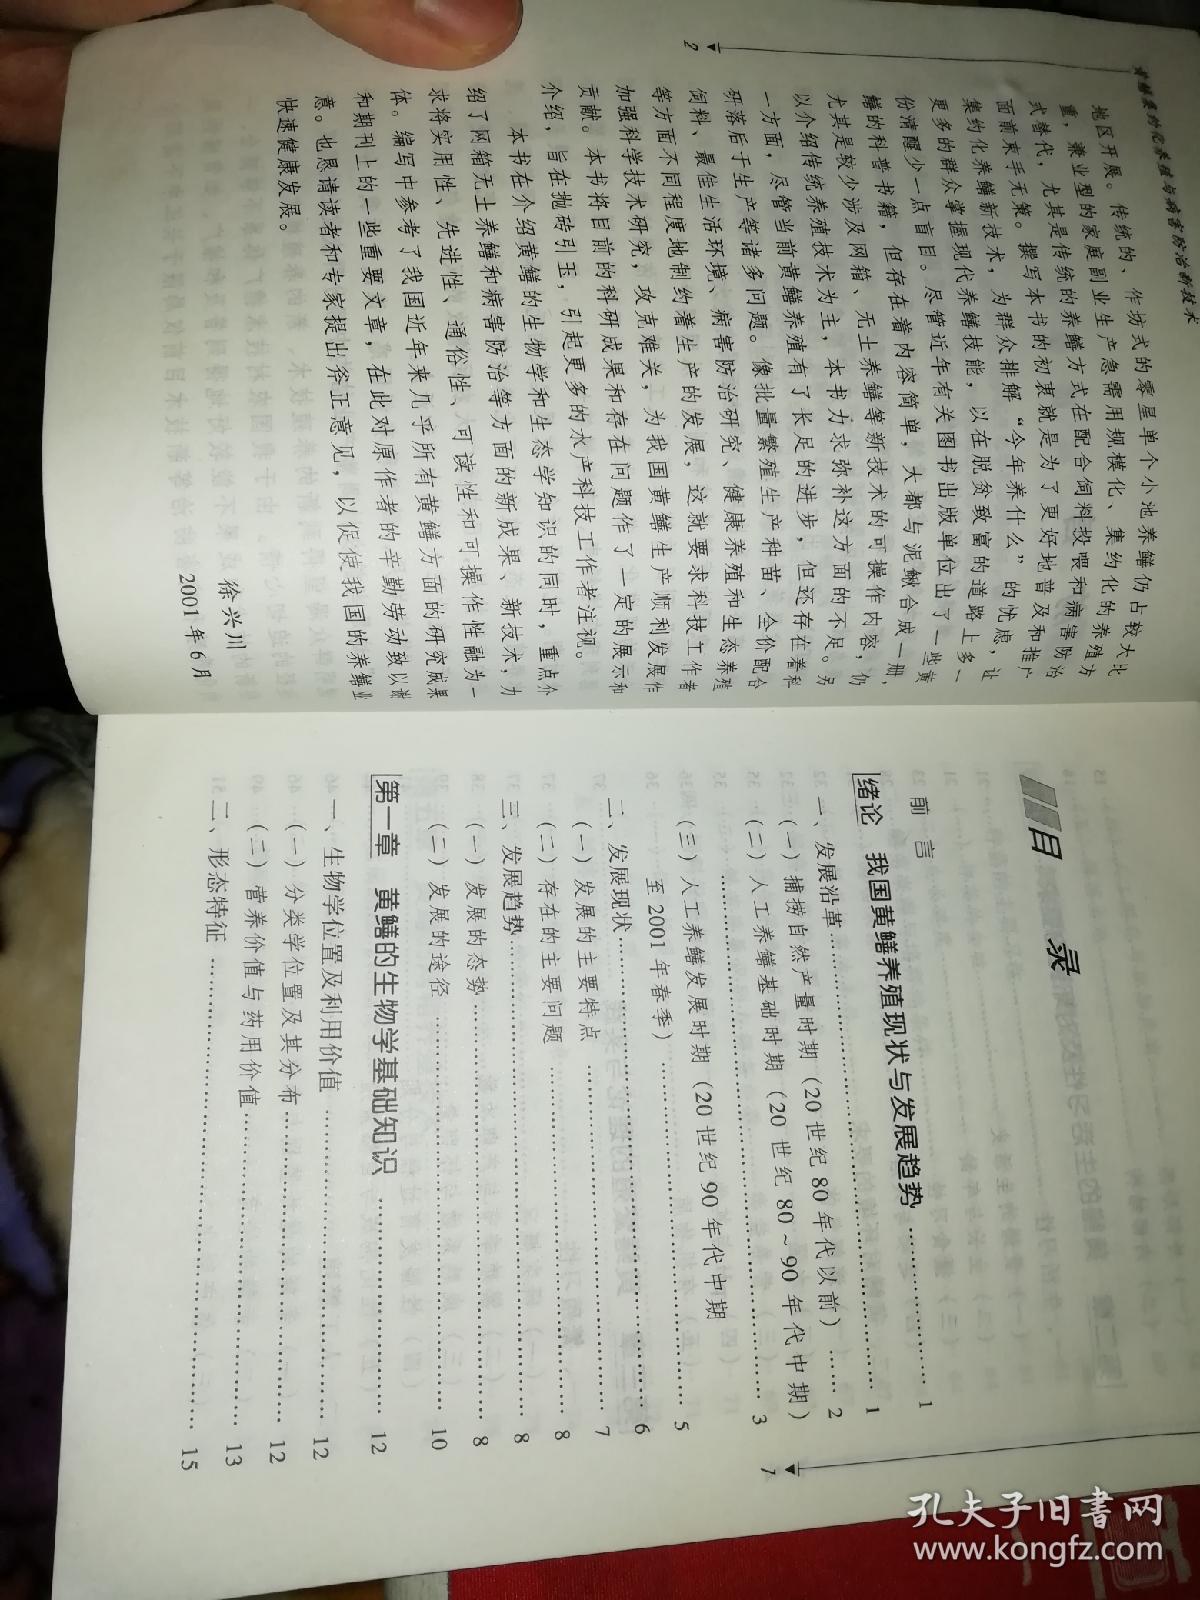 黄鳝集约化养殖与病害防治新技术
地区开展。传统的、作坊式的零星单个小池养鳝仍占较大比
重，兼业型的家庭副业生产急需用规模化、集约化的养殖方
式替代，尤其是传统的养鳝方式在配合饲料投喂和病害防治
面前束手无策。撰写本书的初衷就是为了更好地普及和推广
集约化养鳝新技术，为群众排解“今年养什么”的忧虑，让
更多的群众掌握现代养鳝技能，以在脱贫致富的道路上多一
份清醒少一点盲目。尽管近年有关图书出版单位出了一些黄
鳝的科普书籍，但存在着内容简单，大都与泥鳅合成一册，
尤其是较少涉及网箱、无土养鳝等新技术的可操作内容，仍
以介绍传统养殖技术为主，本书力求弥补这方面的不足。另
一方面，尽管当前黄鳝养殖有了长足的进步，但还存在着科
研落后于生产等诸多问题。像批量繁殖生产种苗、全价配合
饲料、最佳生活环境、病害防治研究、健康养殖和生态养殖
等方面不同程度地制约着生产的发展，这就要求科技工作者
加强科学技术研究，攻克难关，为我国黄鳝生产顺利发展作
贡献。本书将目前的科研成果和存在问题作了一定的展示和
介绍，旨在抛砖引玉，引起更多的水产科技工作者注视。
本书在介绍黄鳝的生物学和生态学知识的同时，重点介
绍了网箱无土养鳝和病害防治等方面的新成果、新技术，力
求将实用性、先进性、通俗性、可读性和可操作性融为一
体。编写中参考了我国近年来几乎所有黄鳝方面的研究成果
和期刊上的一些重要文章，在此对原作者的辛勤劳动致以谢
意。也恳请读者和专家提出斧正意见，以促使我国的养鳝业
快速健康发展。
徐兴川
2001年6月
2
目 录
前 言
绪论 我国黄鳝养殖现状与发展趋势 …… 1
一、发展沿革 …… 1
（一）捕捞自然产量时期（20世纪80年代以前） …… 2
（二）人工养鳝基础时期（20世纪80~90年代中期）
…… 3
（三）人工养鳝发展时期（20世纪90年代中期
至2001年春季） …… 5
二、发展现状 …… 6
（一）发展的主要特点 …… 7
（二）存在的主要问题 …… 8
三、发展趋势 …… 8
（一）发展的态势 …… 8
（二）发展的途径 …… 10
第一章 黄鳝的生物学基础知识 …… 12
一、生物学位置及利用价值 …… 12
（一）分类学位置及其分布 …… 12
（二）营养价值与药用价值 …… 13
二、形态特征 …… 15
1
孔夫子旧书网
www.kongfz.com